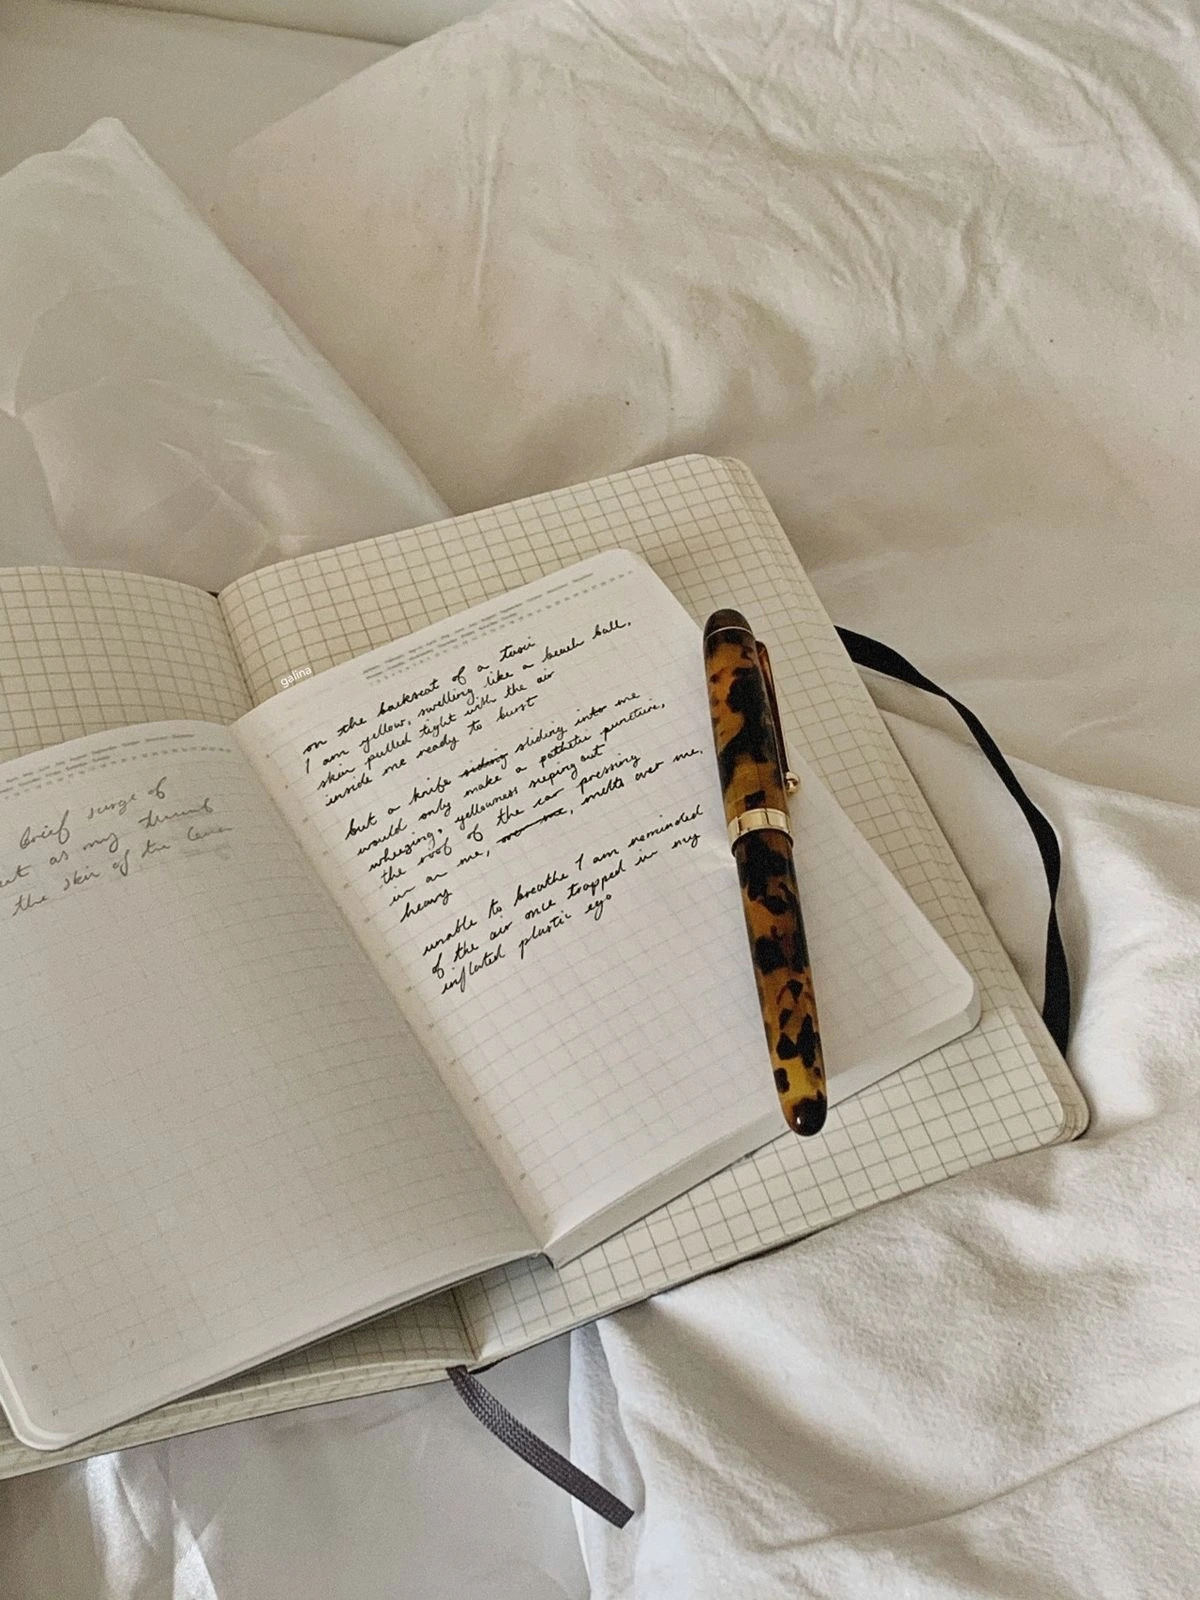 brief surge of
as my thumb
the skin of the
galina
on the backseat of a taxi
I am yellow, swelling like a beach ball,
skin pulled tight with the air
inside me ready to burst
but a knife siding sliding into me
would only make a pathetic puncture,
wheezing, yellowness seeping out
the roof of the car pressing
in on me, melts over me,
heavy
unable to breathe I am reminded
of the air once trapped in my
inflated plastic ego